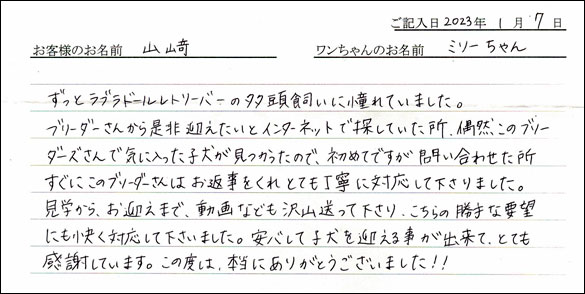 ご記入日 2023年 1月 7日
お客様のお名前 山﨑 ワンちゃんのお名前 ミリーちゃん
ずっとラブラドールレトリーバーの多頭飼いに憧れていました。
ブリーダーさんから是非迎えたいとインターネットで探していた所、偶然このブリー
ダーズさんで気に入った子犬が見つかったので、初めてですが問い合わせた所
すぐにこのブリーダーさんはお返事をくれとても丁寧に対応して下さりました。
見学から、お迎えまで、動画なども沢山送って下さり、こちらの勝手な要望
にも快く対応して下さいました。安心して子犬を迎える事が出来て、とても
感謝しています。この度は、本当にありがとうございました!!